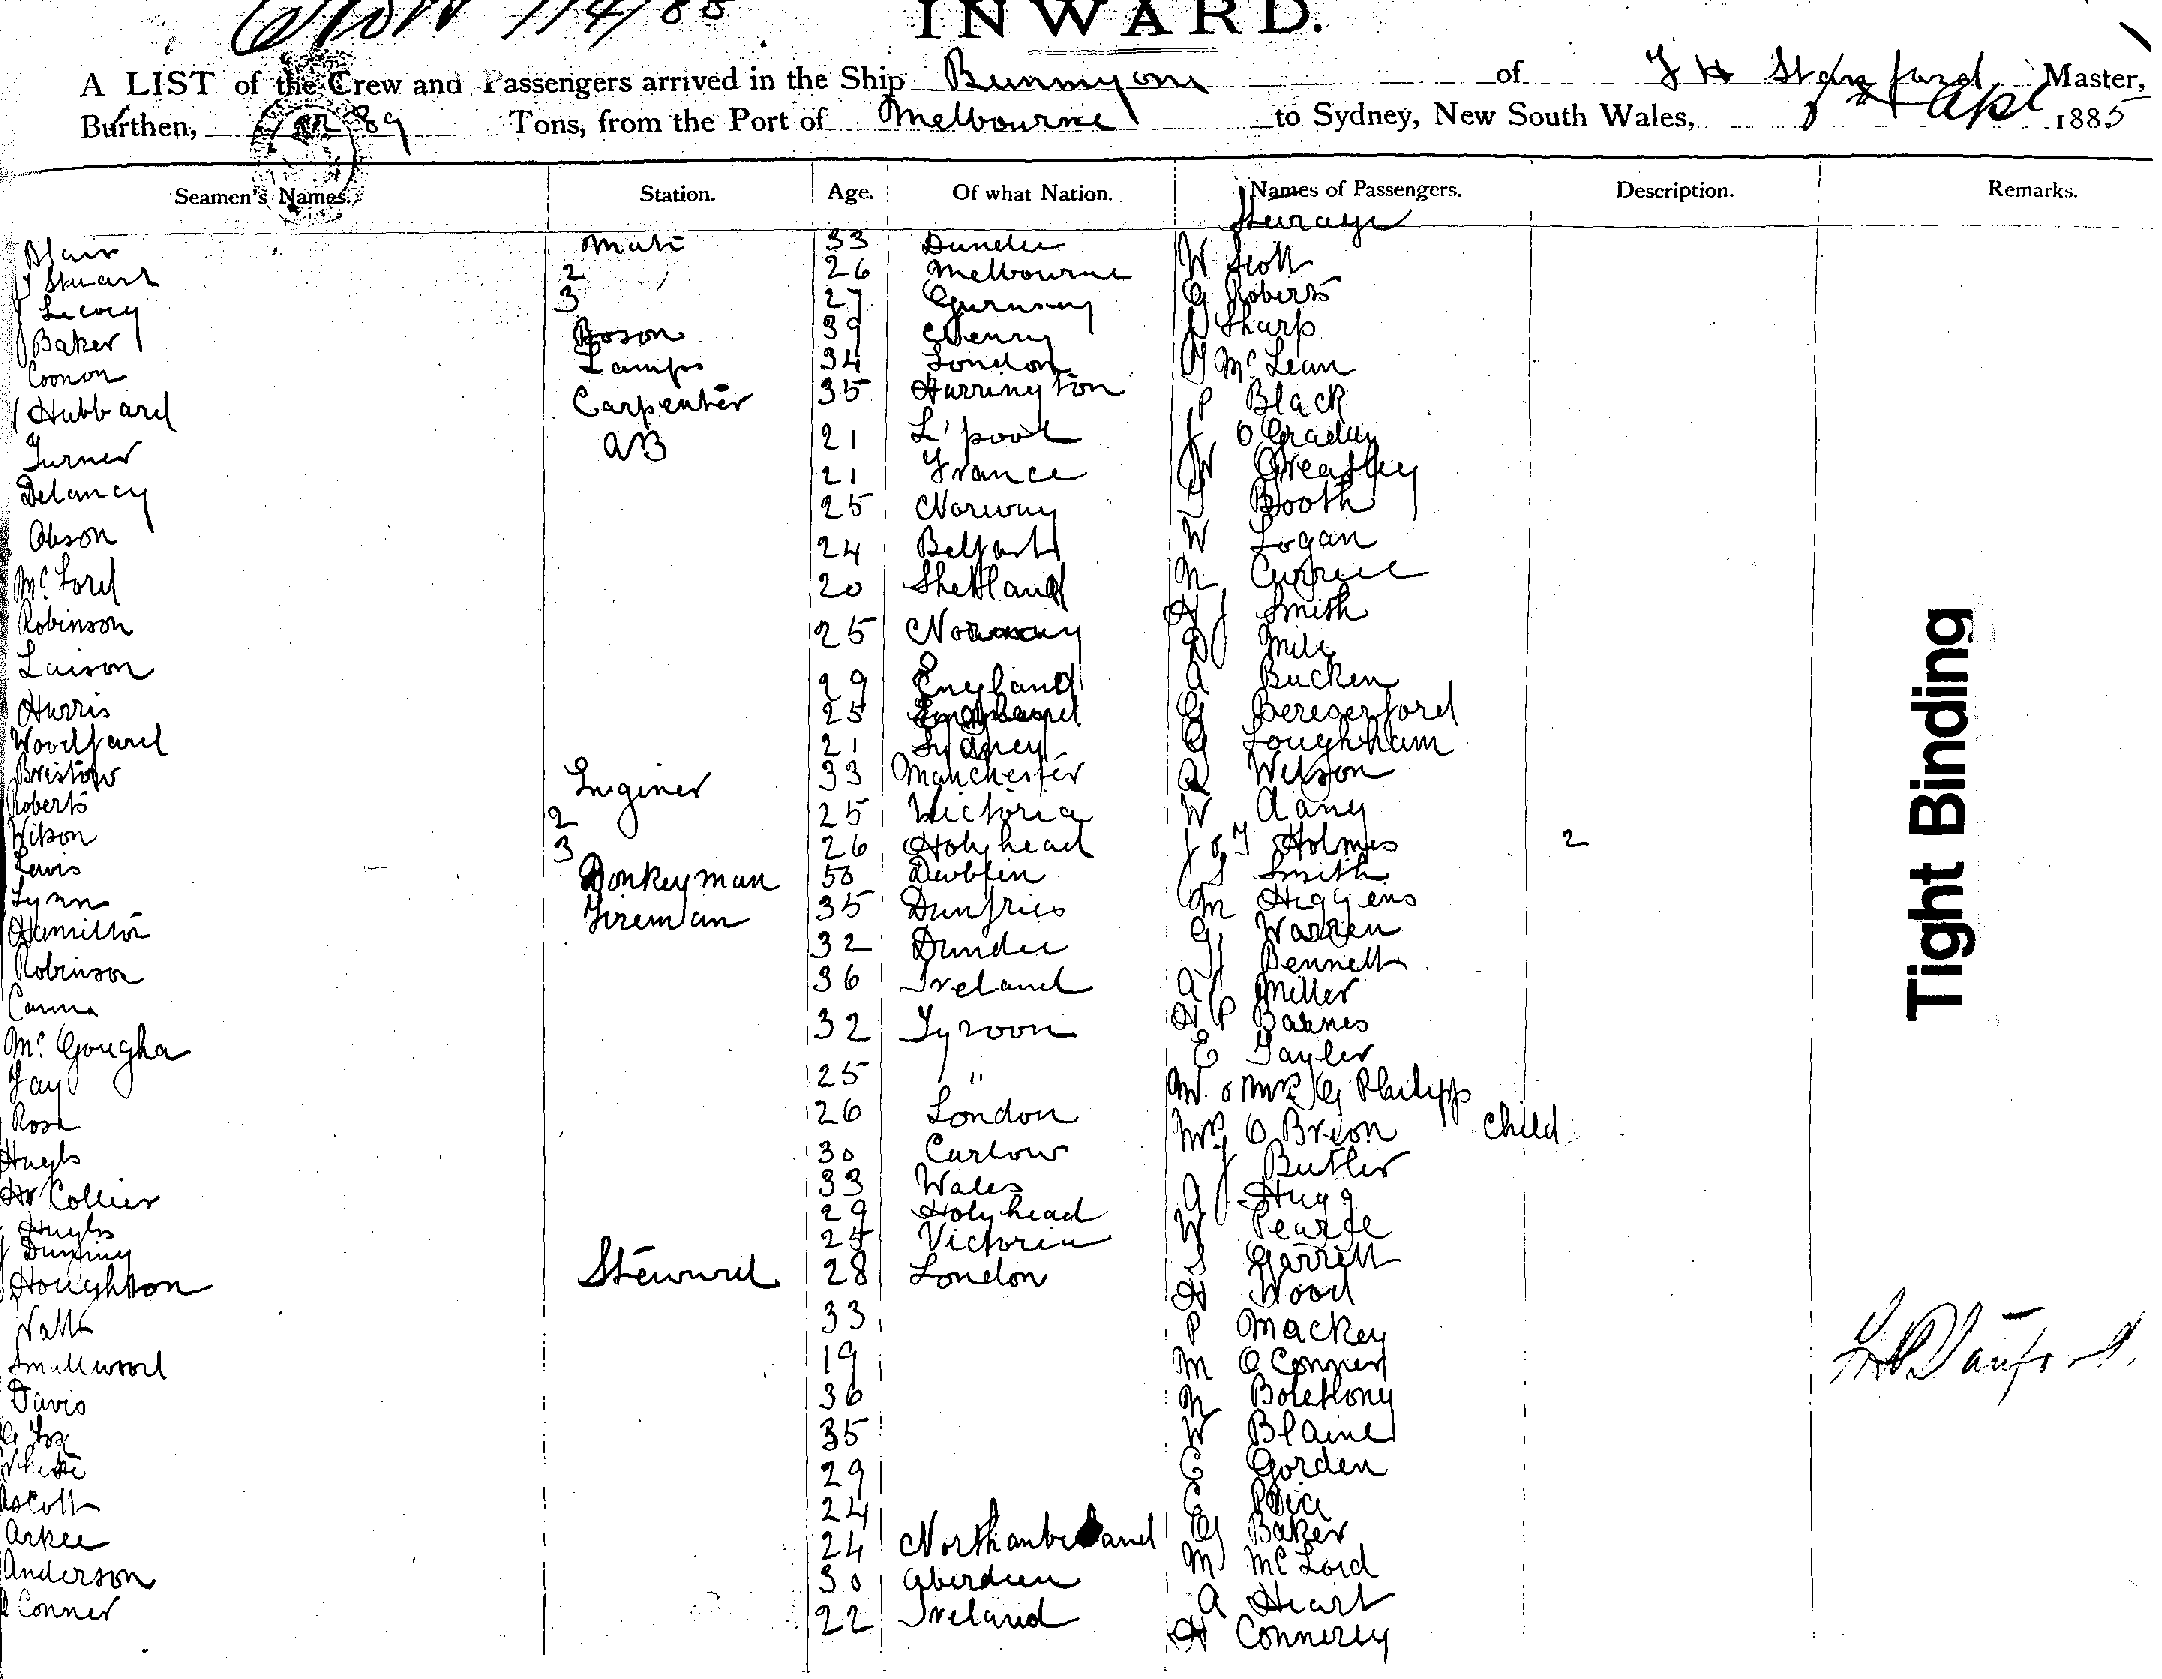 INWARD.
A LIST of the Crew and Passengers arrived in the Ship Bunnyong of J H Stanford Master,
Burthen, Tons, from the Port of Melbourne to Sydney, New South Wales, 1st Apl 1885
Seamen's Names. Station. Age. Of what Nation. Names of Passengers. Description. Remarks.
Steerage
Blair Mate 33 Dundee W Scott
J Stuart 2 26 Melbourne G Roberts
Lecory 3 27 Gurnsey Sharp
Baker Boson 39 London McLean
Coonon Lamps 34 Harrington P Black
Hubbard Carpenter 35 L'pool J O Grady
Turner AB 21 France W Greatley
Delancy 21 Norway Booth
Obson 25 Belfast W Logan
McLord 24 Shetland Currie
Robinson 20 Norway H J Smith
Laison 25 England Mile
Harris 29 England A Bucken
Woodfard 25 Sydney G Beregerford
Bristow 21 Manchester G Loughnam
Roberts Enginer 33 Victoria Wilson
Wilson 2 25 Holyhead W Aany
Lewis 3 26 Dubblin J & T Holmes 2
Lynn Donkeyman 50 Dunfries J S Smith
Hamilton Fireman 35 Dundee M Higgens
Robinson 32 Ireland G Warren
Canna 36 Tyroon J Bennett
McGougha 32 " A Miller
Jay 25 London H P Barnes
Ross 26 Carlow E Tayler
Hughs 30 Wales M & Mrs G Philipp
Hr Collier 33 Holyhead Mrs O Brion child
Hughs 29 Victoria J Butler
Dunning 25 London A J Hugg
Houghton Steward 28 W Pearce
Watts 33 S Garrett
Smallwood 19 H Wood
Davis 36 P Mackey
G Fox 35 M O Conner
White 29 N Bolethony
Ascott 24 W Blaine
Arkee 24 Northumberland C Gorden
Anderson 30 Aberdeen E Price
Conner 22 Ireland G Baker
M McLord
A Heart
H Connerly
Tight Binding